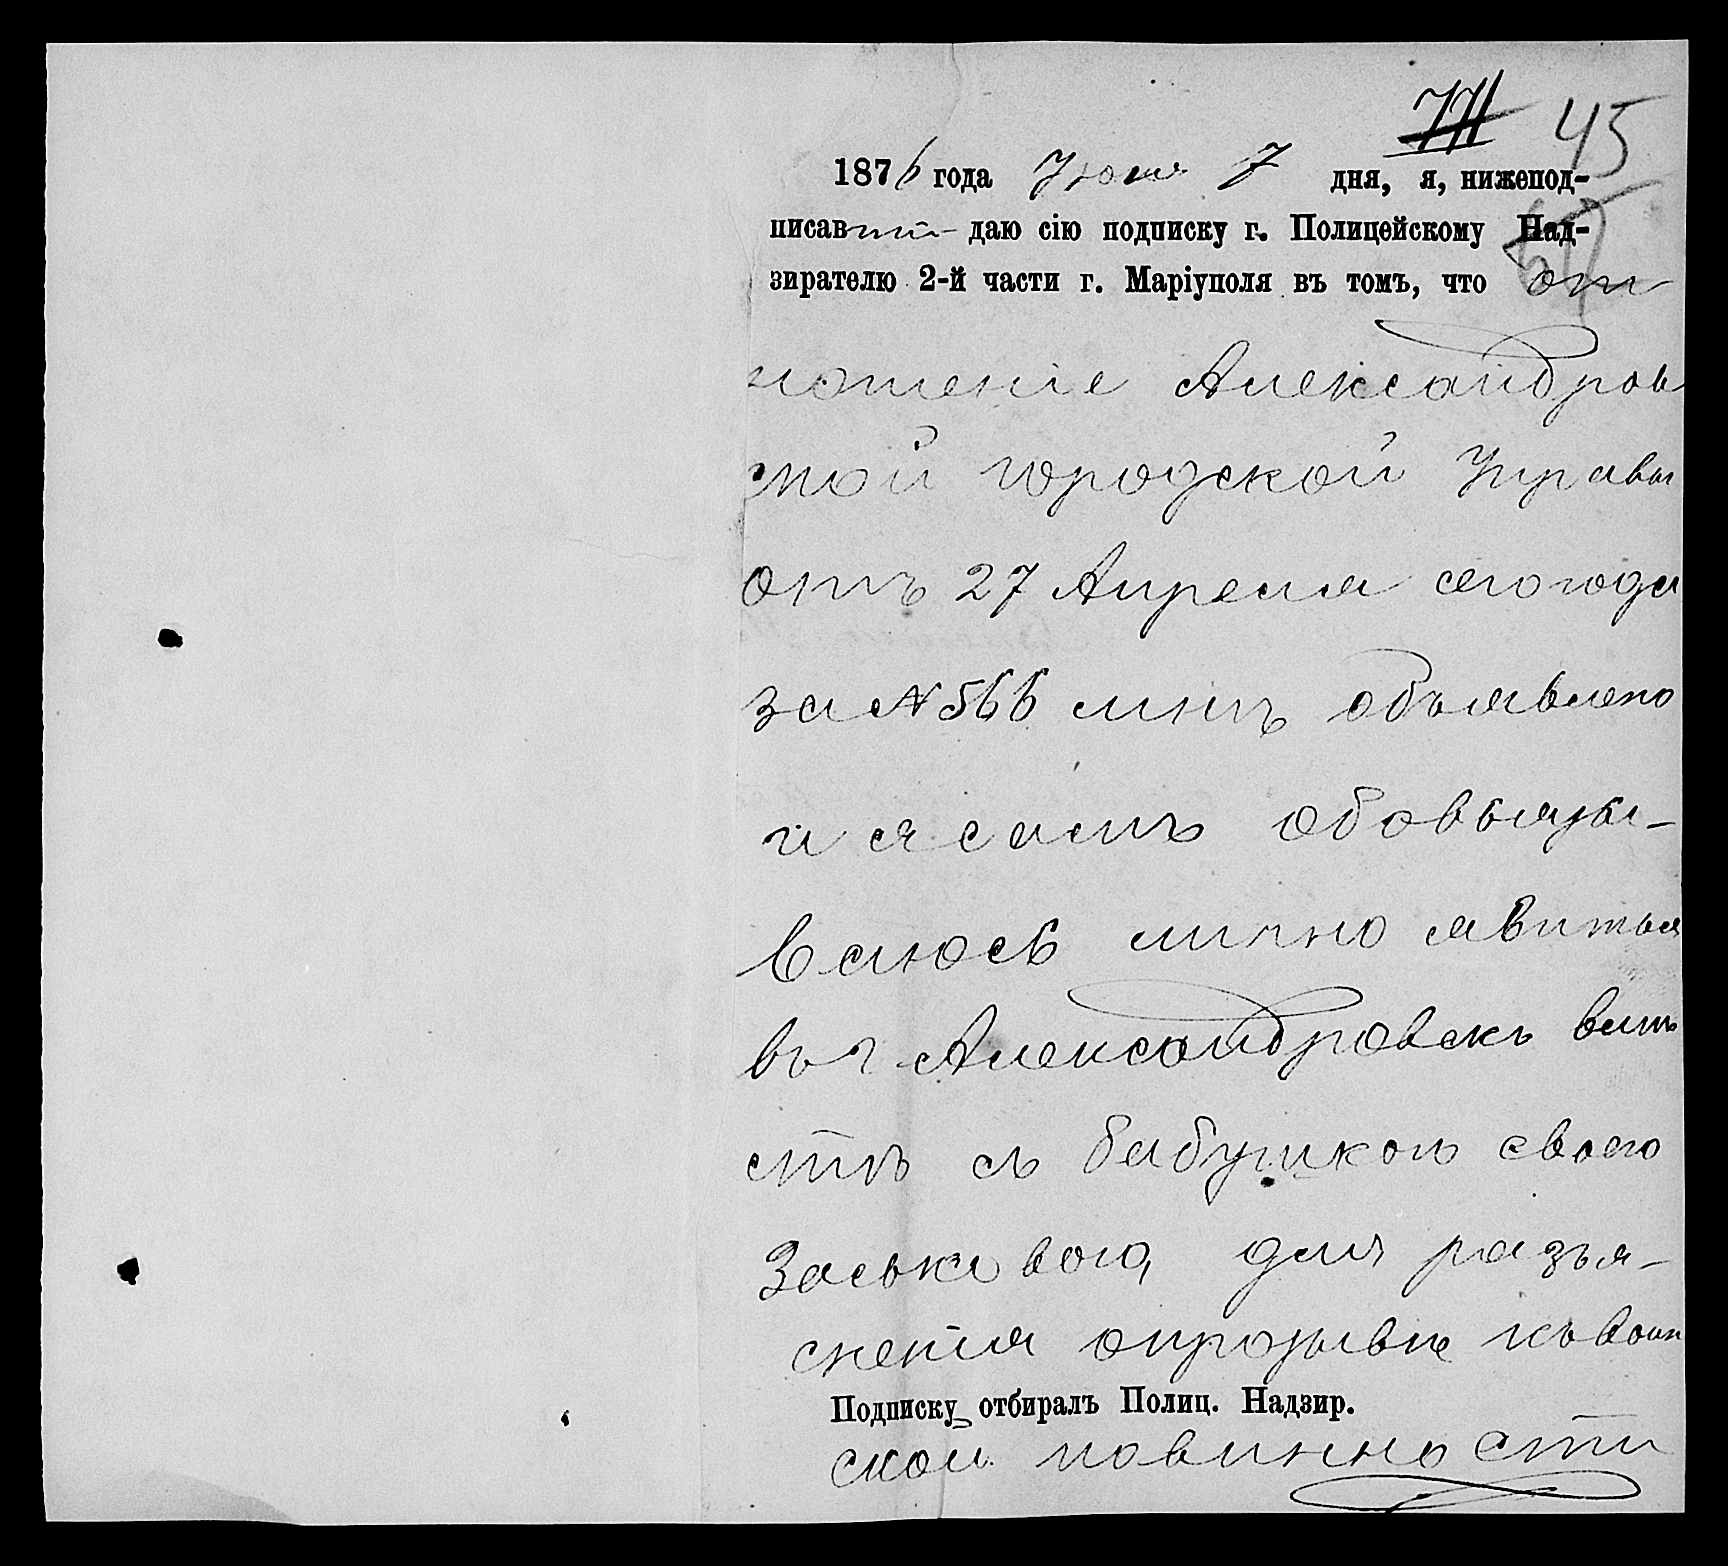 45
1876 года Іюня 7 дня, я, нижепод-
писавшій даю сію подписку г. Полицейскому Над-
зирателю 2-й части г. Маріуполя въ томъ, что от
ношеніе Александров
ской городской Управы
отъ 27 Апреля сего года
за № 566 мнѣ объявлено
и я самъ обовязы-
ваюсь лично явиться
въ г Александровскъ вмѣ
стѣ съ бабушкою своею
Заськавою, для разъя-
снения о прозывѣ къ воин
Подписку отбиралъ Полиц. Надзир.
ской повинности